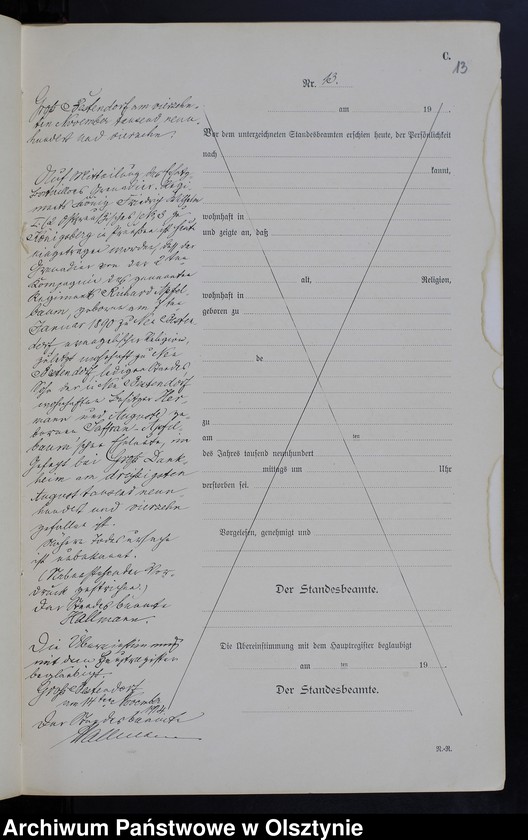 C.
13
Nr. 13.
am 19
Vor dem unterzeichneten Standesbeamten erschien heute, der Persönlichkeit
nach
kannt,
wohnhaft in
und zeigte an, daß
alt, Religion,
wohnhaft in
geboren zu
de
zu
am ten
des Jahres tausend neunhundert
mittags um Uhr
verstorben sei.
Vorgelesen, genehmigt und
Der Standesbeamte.
Die Übereinstimmung mit dem Hauptregister beglaubigt
am ten 19
Der Standesbeamte.
R.-R.
Groß am vierzehn-
ten November tausend neun-
hundert und vierzehn.
Auf Mitteilung des Ersatz
Bataillons Grenadier Regi-
ments König Friedrich Wilhelm
I. (2. Ostpreußisches) No 3 zu
Königsberg in Preußen ist heute
eingetragen worden, daß der
Grenadier von der 2ten
Kompagnie des genannten
Regiments Richard Apfel-
baum, geboren am
Januar 1890 zu Neu
dorf, evangelischer Religion,
zuletzt wohnhaft zu Neu
ledigen Standes
Sohn der zu Neu
wohnhaften Besitzer Her-
mann und Auguste ge-
borenen Apfel-
baum'schen Eheleute, im
Gefecht bei Groß
heim am dreißigsten
August tausend neun-
hundert und vierzehn
gefallen ist.
Nähere Todesursache
ist unbekannt.
(Nebenstehender Vor-
druck gestrichen.)
Der Standesbeamte
Hallmann.
Die Übereinstimmung
mit dem Hauptregister
beglaubigt.
Groß
am 14ten November
1914.
Der Standesbeamte
Hallmann
Archiwum Państwowe w Olsztynie